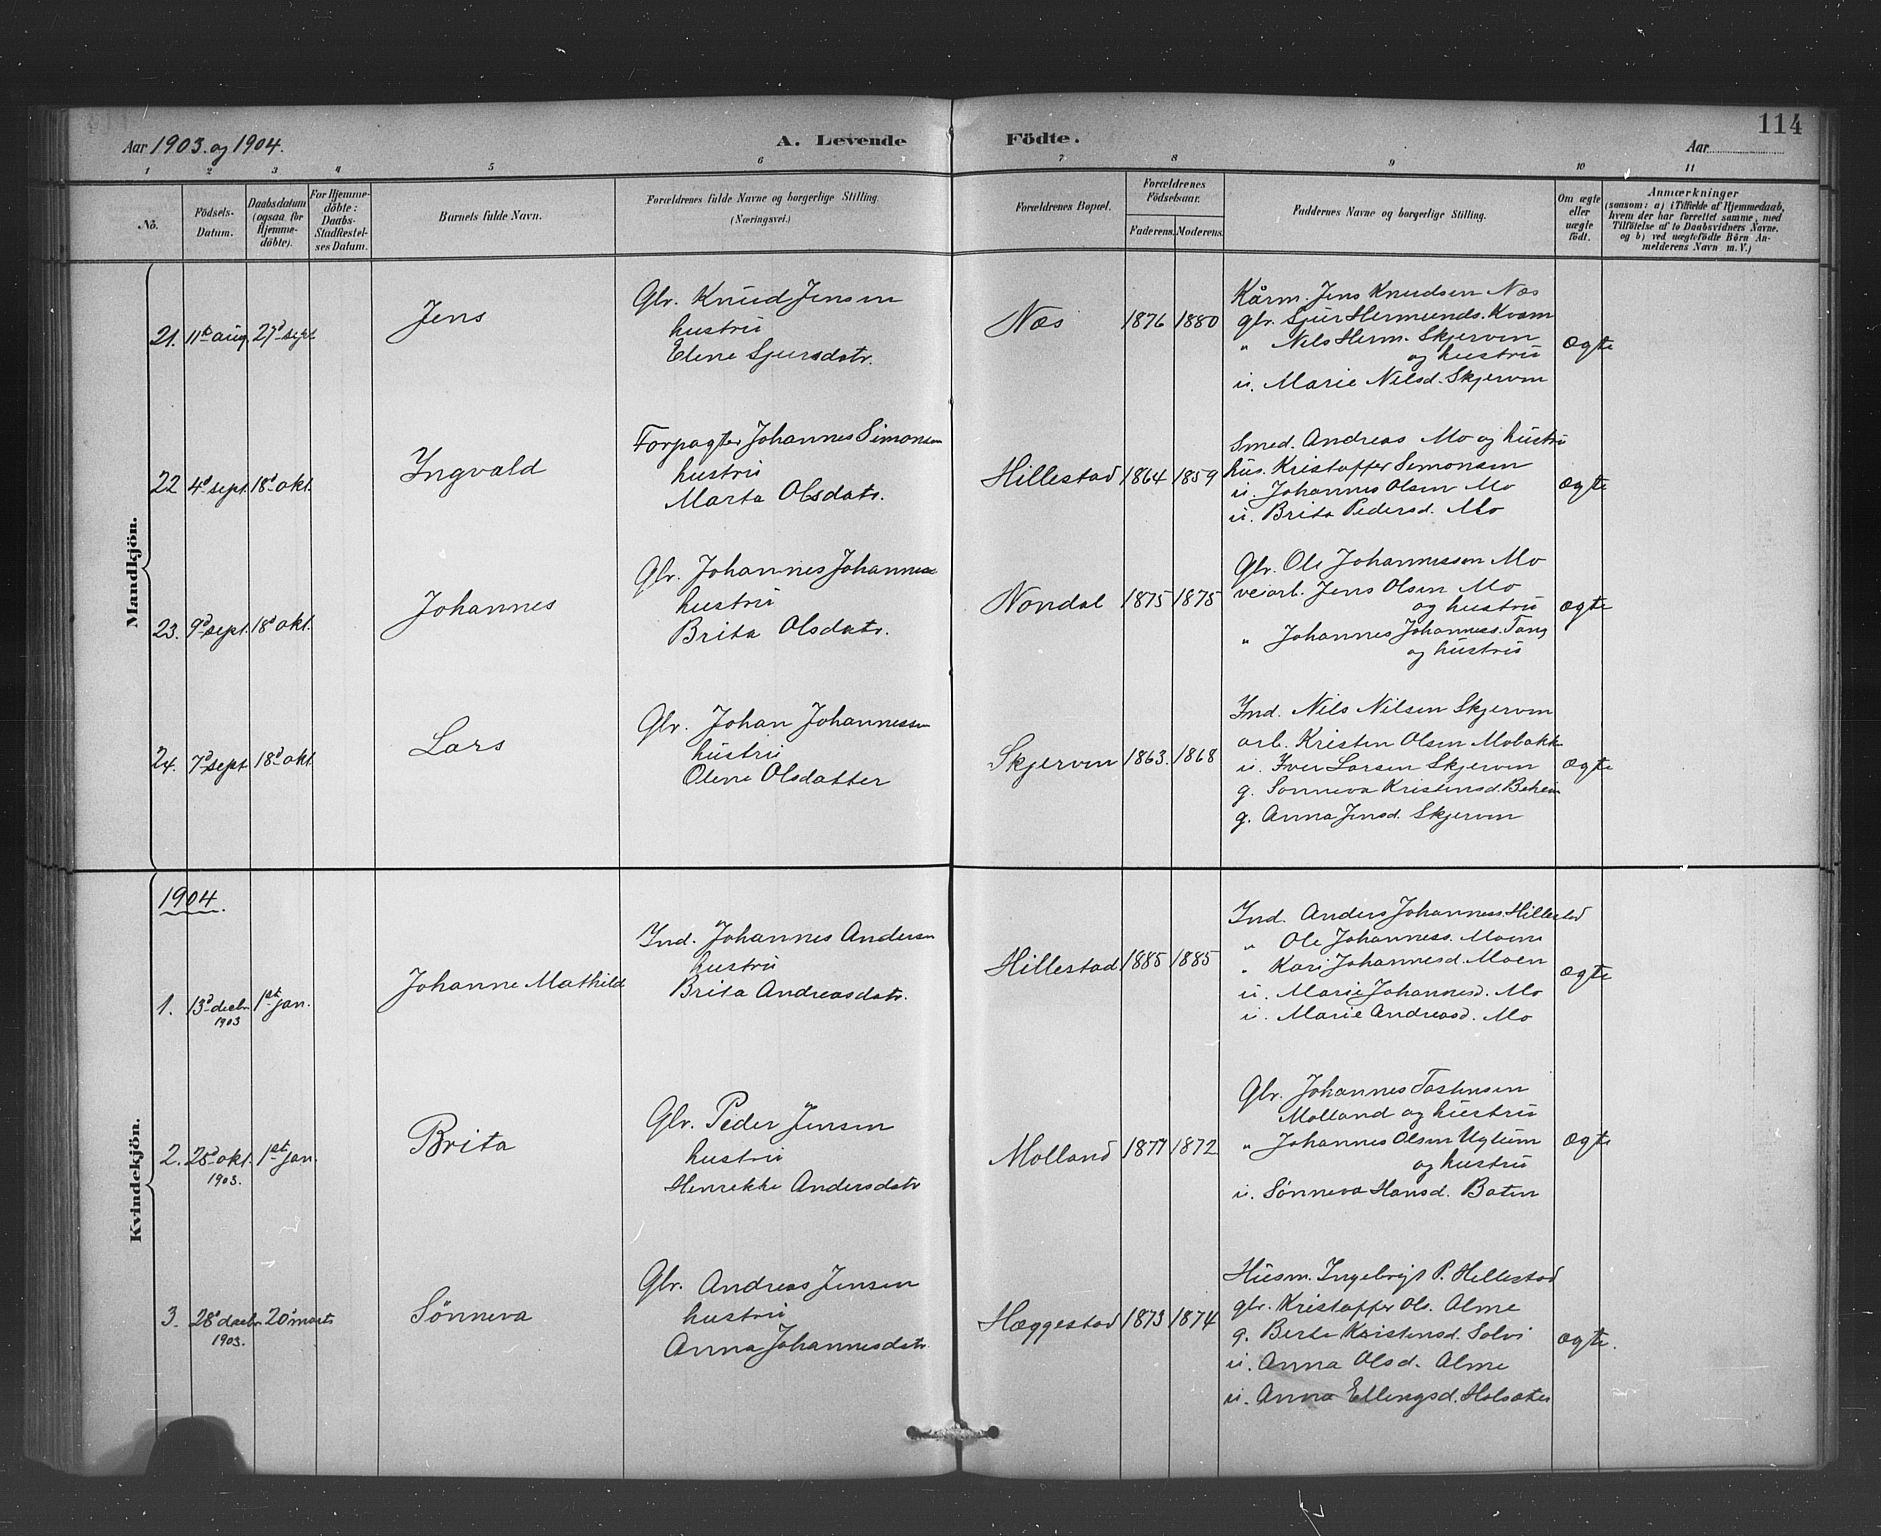 114
Aar 1903. og 1904.
A. Levende Födte.
Aar
1 2 3 4 5 6 7 8 9 10 11
No.
Födsels-Datum.
Daabsdatum (ogsaa for Hjemme-döbte).
For Hjemme-döbte: Daabs-Stadfæstel-ses Datum.
Barnets fulde Navn.
Forældrenes fulde Navne og borgerlige Stilling.
(Næringsvei.)
Forældrenes Bopæl.
Forældrenes Födselsaar.
Faderens. Moderens.
Faddernes Navne og borgerlige Stilling.
Om ægte eller uægte födt.
Anmærkninger
(saasom: a) i Tilfælde af Hjemmedaab, hvem der har forrettet samme, med Tilföielse af to Daabsvidners Navne, og b) ved uægtefödte Börn An-melderens Navn m. V.)
Mandkjön.
21. 11te aug. 27d sept. Jens
Gbr. Knud Jensen
hustru
Elene Sjursdatr.
Næs 1876 1880
Kårm. Jens Knudsen Næs
gbr. Sjur Hermunds. Kvam
" Nils Herm. Skjerven
og hustru
u. Marie Nilsd. Skjerven
ægte
22 4d sept. 18d okt. Ingvald
Forpagter Johannes Simonsen
hustru
Marta Olsdatr.
Hillestad 1864 1859
Smed. Andreas Mo og hustru
hus. Kristoffer Simonsen
u. Johannes Olsen Mo
u. Brita Pedersd. Mo
ægte
23. 9d sept. 18d okt. Johannes
Gbr. Johannes Johannesen
hustru
Brita Olsdatr.
Nondal 1875 1875
Gbr. Ole Johannessen Mo
veiarb. Jens Olsen Mo
og hustru
" Johannes Johanness. Tang
og hustru
ægte
24. 7d sept 18d okt. Lars
Gbr. Johan Johannessen
hustru
Olene Olsdatter
Skjerven 1863. 1868
Ind. Nils Nilsen Skjerven
arb. Kristen Olsen Mobakk
u. Iver Larsen Skjerven
g. Sønneva Kristensd.
g. Anna Jensd. Skjerven
ægte
Kvindekjön.
1904.
1. 13d decbr. 1903 1st jan. Johanne Mathilde
Ind. Johannes Andersen
hustru
Brita Andreasdatr.
Hillestad 1885 1885
Ind. Anders Johanness. Hillestad
" Ole Johanness. Moen
" Kari Johannesd. Moen
u. Marie Johannesd. Mo
u. Marie Andreasd. Mo
ægte
2. 28d okt. 1903. 1st jan. Brita
Gbr. Peder Jensen
hustru
Henrikke Andersdatr
Molland 1877 1872
Gbr. Johannes Tostensen
Molland og hustru
" Johannes Olsen Uglum
og hustru
u. Sønneva Hansd. Baten
ægte
3. 28d decbr. 1903. 20d marts Sønneva
Gbr. Andreas Jensen
hustru
Anna Johannesdatr
Hæggestad 1873 1874
Husm. Ingebrigt P. Hellestad
gbr. Kristoffer Ols. Alme
g. Berta Kristensd. Solvi
u. Anna Olsd. Alme
u. Anna Ellingsd. Holsæter
ægte.